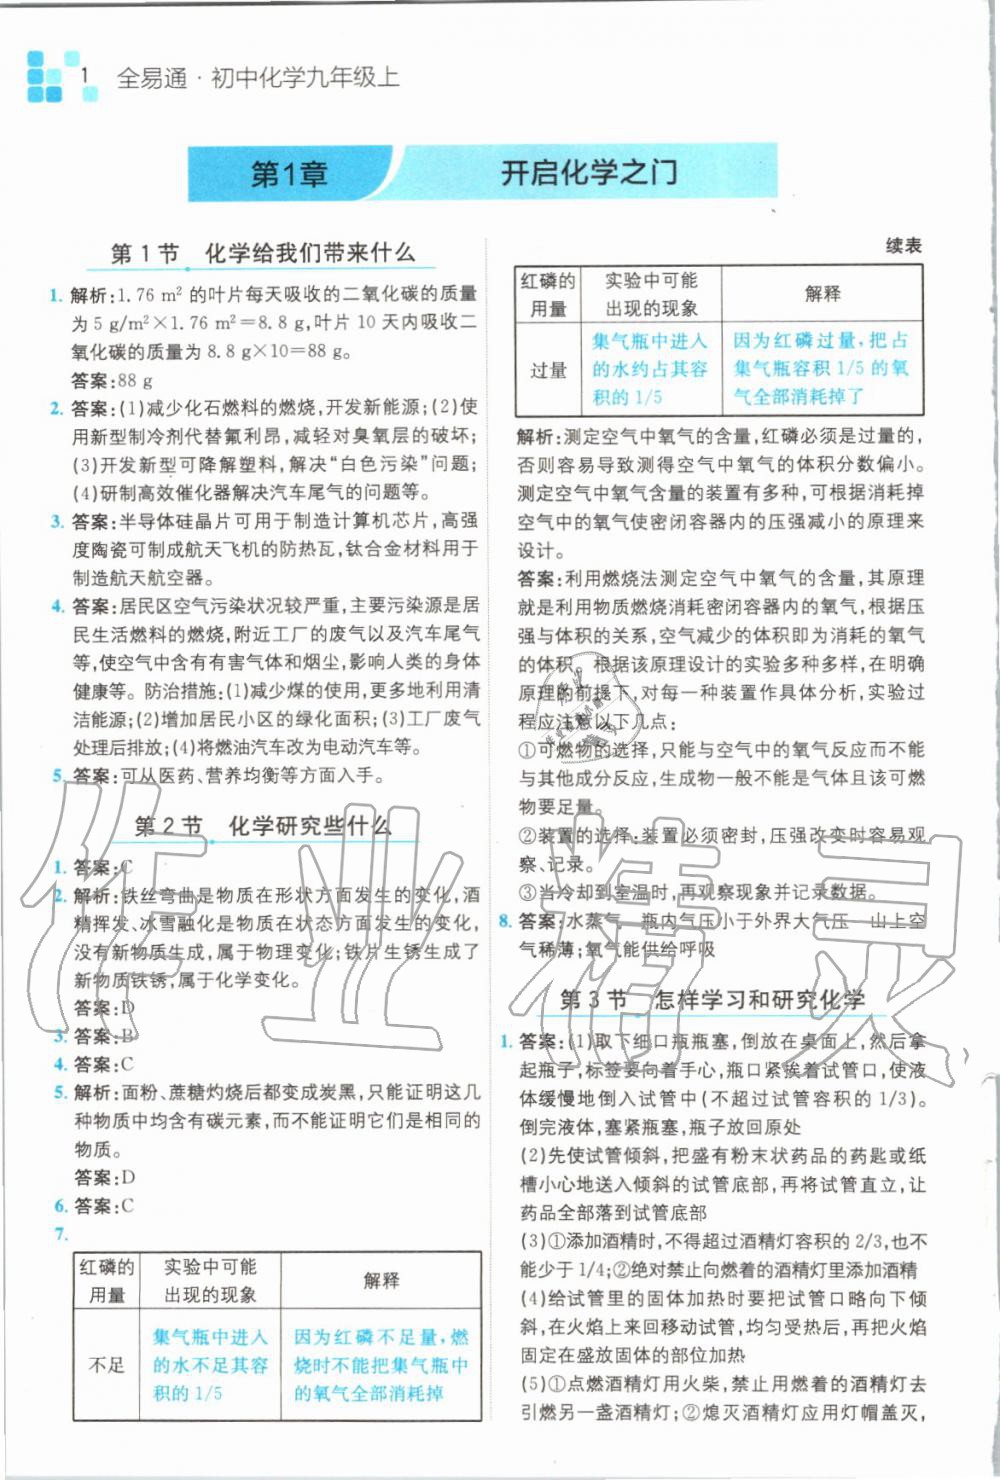 1 全易通·初中化学九年级上
第1章 开启化学之门
第1节 化学给我们带来什么
1. 解析:1.76 m²的叶片每天吸收的二氧化碳的质量
为5 g/m²×1.76 m²=8.8 g,叶片10天内吸收二
氧化碳的质量为8.8 g×10=88 g。
答案:88 g
2. 答案:(1)减少化石燃料的燃烧,开发新能源;(2)使
用新型制冷剂代替氟利昂,减轻对臭氧层的破坏;
(3)开发新型可降解塑料,解决“白色污染”问题;
(4)研制高效催化器解决汽车尾气的问题等。
3. 答案:半导体硅晶片可用于制造计算机芯片,高强
度陶瓷可制成航天飞机的防热瓦,钛合金材料用于
制造航天航空器。
4. 答案:居民区空气污染状况较严重,主要污染源是居
民生活燃料的燃烧,附近工厂的废气以及汽车尾气
等,使空气中含有有害气体和烟尘,影响人类的身体
健康等。防治措施:(1)减少煤的使用,更多地利用清
洁能源;(2)增加居民小区的绿化面积;(3)工厂废气
处理后排放;(4)将燃油汽车改为电动汽车等。
5. 答案:可从医药、营养均衡等方面入手。
第2节 化学研究些什么
1. 答案:C
2. 解析:铁丝弯曲是物质在形状方面发生的变化,酒
精挥发、冰雪融化是物质在状态方面发生的变化,
没有新物质生成,属于物理变化;铁片生锈生成了
新物质铁锈,属于化学变化。
答案:D
3. 答案:B
4. 答案:C
5. 解析:面粉、蔗糖灼烧后都变成炭黑,只能证明这几
种物质中均含有碳元素,而不能证明它们是相同的
物质。
答案:D
6. 答案:C
7.
红磷的用量 实验中可能出现的现象 解释
不足 集气瓶中进入的水不足其容积的1/5 因为红磷不足量,燃烧时不能把集气瓶中的氧气全部消耗掉
续表
红磷的用量 实验中可能出现的现象 解释
过量 集气瓶中进入的水约占其容积的1/5 因为红磷过量,把占集气瓶容积1/5的氧气全部消耗掉了
解析:测定空气中氧气的含量,红磷必须是过量的,
否则容易导致测得空气中氧气的体积分数偏小。
测定空气中氧气含量的装置有多种,可根据消耗掉
空气中的氧气使密闭容器内的压强减小的原理来
设计。
答案:利用燃烧法测定空气中氧气的含量,其原理
就是利用物质燃烧消耗密闭容器内的氧气,根据压
强与体积的关系,空气减少的体积即为消耗的氧气
的体积。根据该原理设计的实验多种多样,在明确
原理的前提下,对每一种装置作具体分析,实验过
程应注意以下几点:
①可燃物的选择,只能与空气中的氧气反应而不能
与其他成分反应,生成物一般不能是气体且该可燃
物要足量。
②装置的选择:装置必须密封,压强改变时容易观
察、记录。
③当冷却到室温时,再观察现象并记录数据。
8. 答案:水蒸气 瓶内气压小于外界大气压 山上空
气稀薄;氧气能供给呼吸
第3节 怎样学习和研究化学
1. 答案:(1)取下细口瓶瓶塞,倒放在桌面上,然后拿
起瓶子,标签要向着手心,瓶口紧挨着试管口,使液
体缓慢地倒入试管中(不超过试管容积的1/3)。
倒完液体,塞紧瓶塞,瓶子放回原处
(2)先使试管倾斜,把盛有粉末状药品的药匙或纸
槽小心地送入倾斜的试管底部,再将试管直立,让
药品全部落到试管底部
(3)①添加酒精时,不得超过酒精灯容积的2/3,也不
能少于1/4;②绝对禁止向燃着的酒精灯里添加酒精
(4)给试管里的固体加热时要把试管口略向下倾
斜,在火焰上来回移动试管,均匀受热后,再把火焰
固定在盛放固体的部位加热
(5)①点燃酒精灯用火柴,禁止用燃着的酒精灯去
引燃另一盏酒精灯;②熄灭酒精灯应用灯帽盖灭,
作业精灵